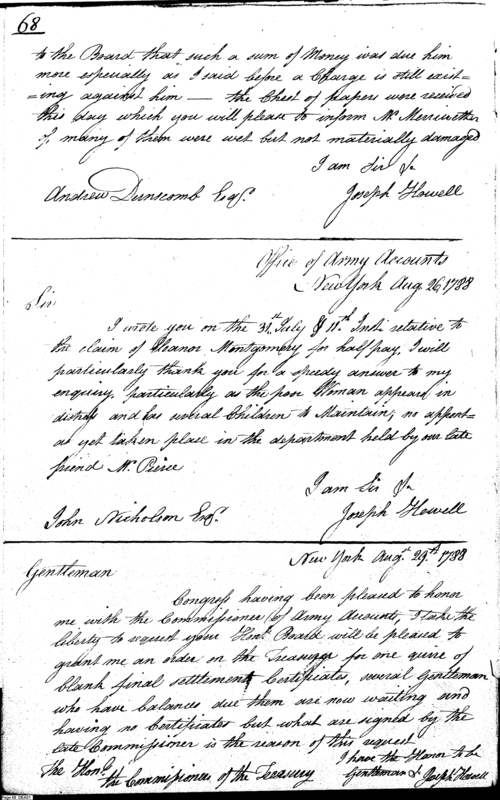 68
to the Board that such a sum of Money was due him
more especially as I said before a Charge is still exist=
=ing against him — the Chest of papers were received
this day which you will please to inform Mr. Merriwether
of, many of them were wet but not materially damaged
I am Sir &c
Andrew Dunscomb Esqr.
Joseph Howell
Office of Army Accounts
New York Aug 26, 1788
Sir
I wrote you on the 31st July & 11th Inst. relative to
the claim of Eleanor Montgomery for half pay, I will
particularly thank you for a speedy answer to my
enquiry, particularly as the poor Woman appears in
distress and has several Children to Maintain; no appoint=
as yet taken place in the department held by our late
friend Mr. Pierce
I am Sir &c
John Nicholson Esqr.
Joseph Howell
New York Augt. 29th. 1788
Gentleman
Congress having been pleased to honor
me with the Commissioner of Army Accounts, I take the
liberty to request your Honbl. Board will be pleased to
grant me an order on the Treasurer for one quire of
blank final settlement Certificates, several Gentleman
who have balances due them are now waiting and
having no Certificates but what are signed by the
late Commissioner is the reason of this request
I have the Honor to be
The Honbl.
the Commissioner of the Treasury
Gentleman &c Joseph Howell